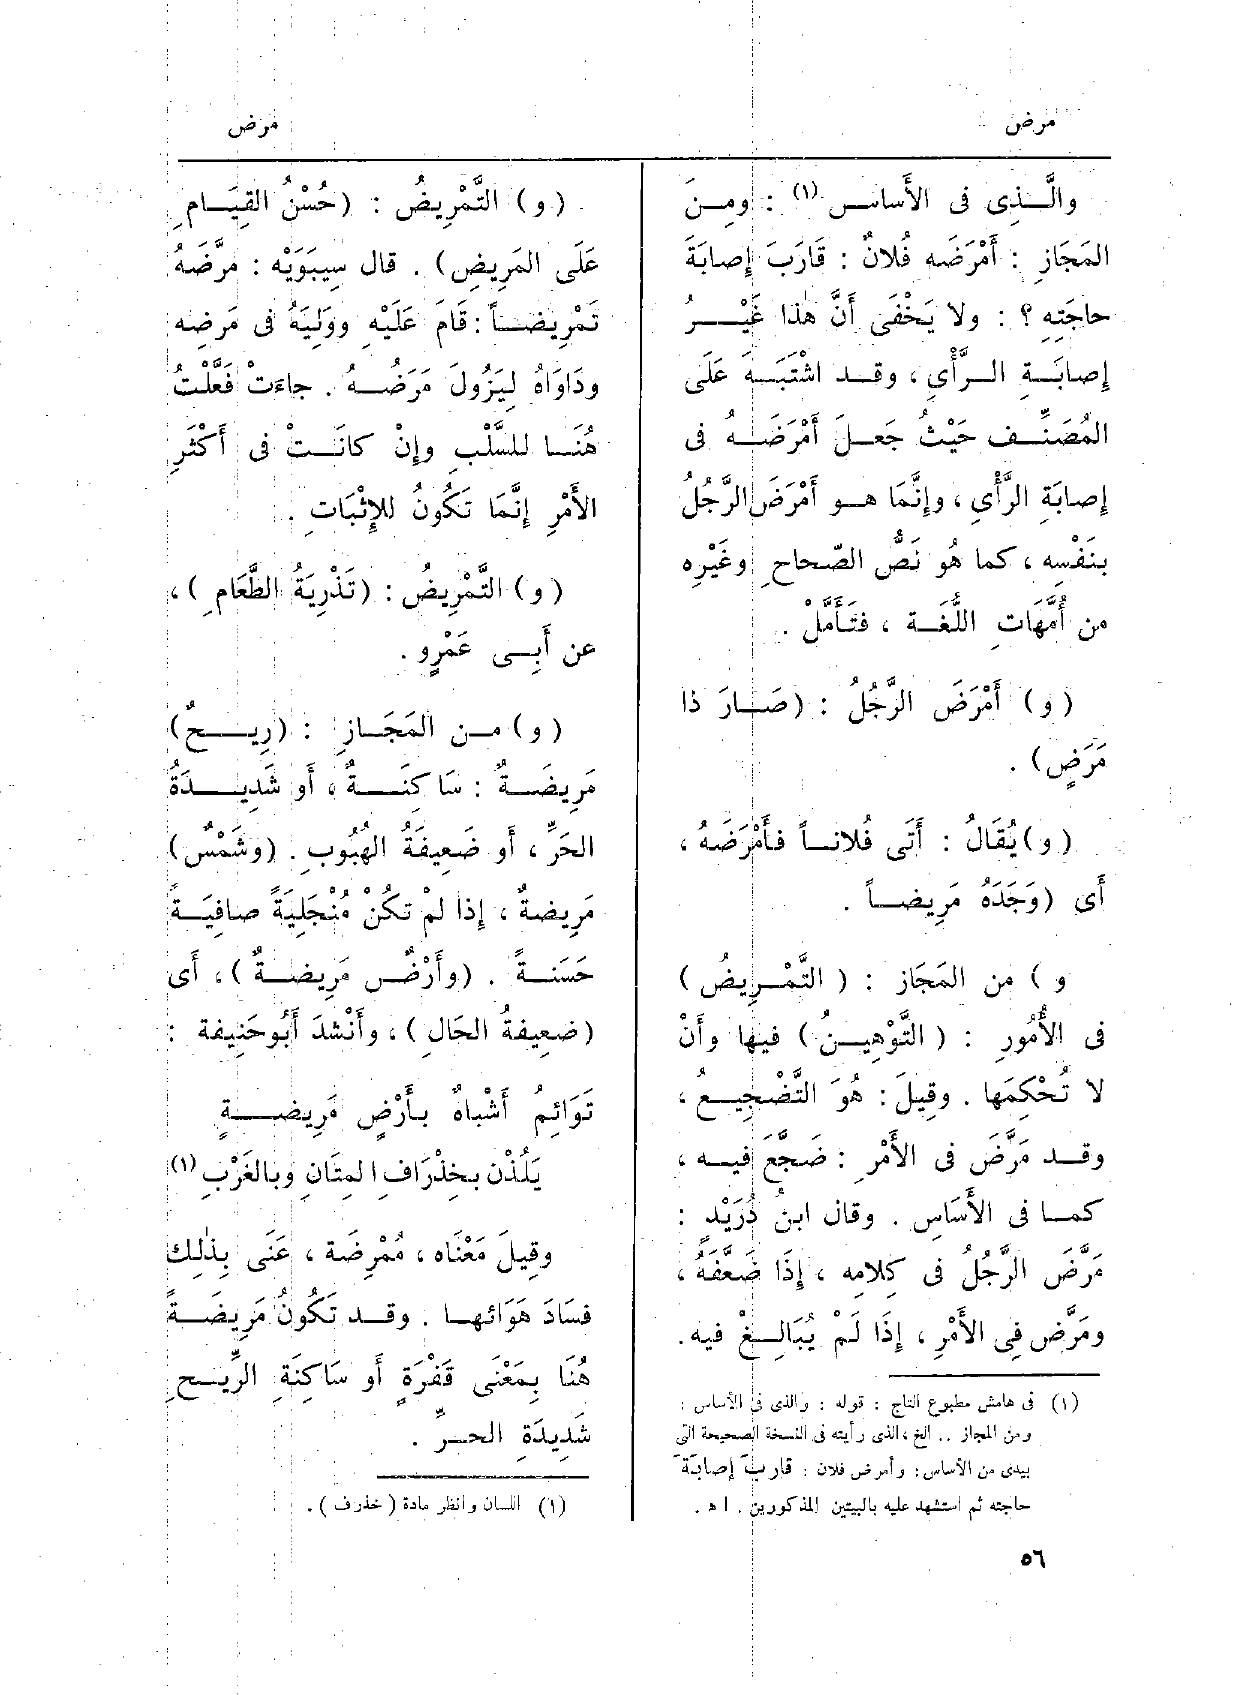 مرض
مرض
والَّذِى فى الأَساس (١) : ومِنَ
المَجَازِ : أَمْرَضَه فُلانٌ : قَارَبَ إِصابَةَ
حاجَتِهِ ؟ : ولا يَخْفَى أَنَّ هٰذا غَيْرُ
إِصابَةِ الرَّأْيِ ، وقد اشْتَبَهَ عَلَى
المُصَنِّف حَيْثُ جَعلَ أَمْرَضَهُ فى
إِصابَةِ الرَّأْيِ ، وإِنَّمَا هو أَمْرَضَ الرَّجُلُ
بنَفْسِه ، كما هُو نَصُّ الصّحاحِ وغَيْرِه
من أُمَّهَاتِ اللُّغَة ، فتَأَمَّلْ .
( و ) أَمْرَضَ الرَّجُلُ : (صَارَ ذا
مَرَضٍ) .
( و ) يُقَالُ : أَتَى فُلاناً فأَمْرَضَهُ ،
أى (وَجَدَهُ مَرِيضاً .
و ) من المَجَاز : ( التَّمْرِيضُ )
فى الأُمُورِ : ( التَّوْهِينُ ) فيها وأَنْ
لا تُحْكِمَها . وقِيلَ : هُوَ التَّضْجِيعُ ،
وقد مَرَّضَ فى الأَمْرِ : ضَجَّعَ فيه ،
كما فى الأَسَاسِ . وقال ابنُ دُرَيْدٍ :
مَرَّضَ الرَّجُلُ فى كلامِه ، إِذَا ضَعَّفَهُ ،
ومَرَّض فِى الأَمْرِ ، إِذَا لَمْ يُبَالِغْ فيه.
(١) فى هامش مطبوع التاج : قوله : والذى فى الأساس :
ومن المجاز .. الخ ، الذى رأيته فى النسخة الصحيحة التى
بيدى من الأساس : وأمرض فلان : قاربَ إصابَةَ
حاجته ثم استشهد عليه بالبيتين المذكورين . ا ه .
( و ) التَّمْرِيضُ : (حُسْنُ القِيَامِ
عَلَى المَرِيضِ) . قال سِيبَوَيْه : مرَّضَهُ
تَمْرِيضاً : قَامَ عَلَيْهِ ووَلِيَهُ فى مَرضِه
ودَاوَاهُ لِيَزُولَ مَرَضُهُ . جاءَتْ فَعَّلْتُ
هُنَا للسَّلْبِ وإِنْ كانَتْ فى أَكْثَرِ
الأَمْرِ إِنَّمَا تَكُونُ للإِثْبَاتِ .
( و ) التَّمْرِيضُ : (تَذْرِيَةُ الطَّعَامِ ) ،
عن أَبِى عَمْرٍو .
( و ) من المَجَازِ : (رِيحٌ)
مَرِيضَةٌ : سَاكِنَةٌ ، أَو شَدِيدَةُ
الحَرِّ ، أَو ضَعِيفَةُ الهُبُوبِ . (وشَمْسٌ)
مَرِيضةٌ ، إِذا لمْ تَكُنْ مُنْجَلِيَةً صافِيَةً
حَسَنةً . (وأَرْضٌ مَرِيضةٌ ) ، أَى
(ضَعِيفةُ الحَالِ ) ، وأَنْشدَ أَبُو حَنِيفة :
تَوَائِمُ أَشْباهٌ بأَرْضٍ مَرِيضةٍ
يَلُذْن بخِذْرَافِ المِتَانِ وبالغَرْبِ (١)
وقِيلَ مَعْنَاه ، مُمْرِضَة ، عَنَى بِذٰلِك
فسَادَ هَوَائها . وقد تَكُونُ مَرِيضَةً
هُنَا بِمَعْنَى قَفْرَةٍ أَو سَاكِنَةِ الرِّيحِ
شَدِيدَةِ الحرِّ .
(١) اللسان وانظر مادة ( خذرف ) .
٥٦